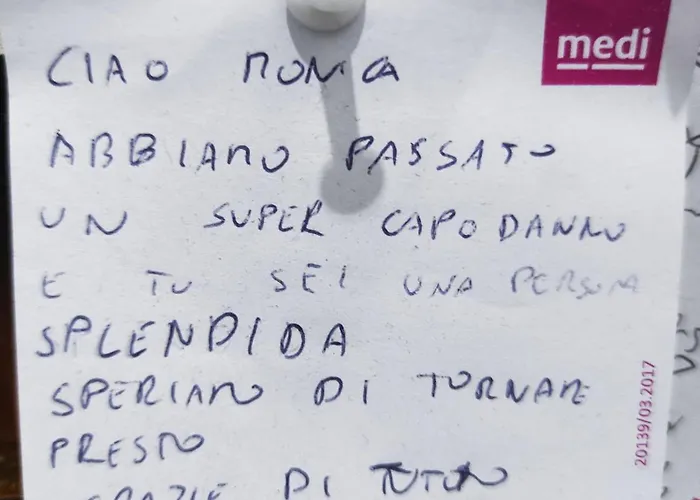 medi
CIAO MONICA
ABBIAMO PASSATO
UN SUPER CAPODANNO
E TU SEI UNA PERSONA
SPLENDIDA
SPERIAMO DI TORNARE
PRESTO
GRAZIE DI TUTTO
20139/03.2017